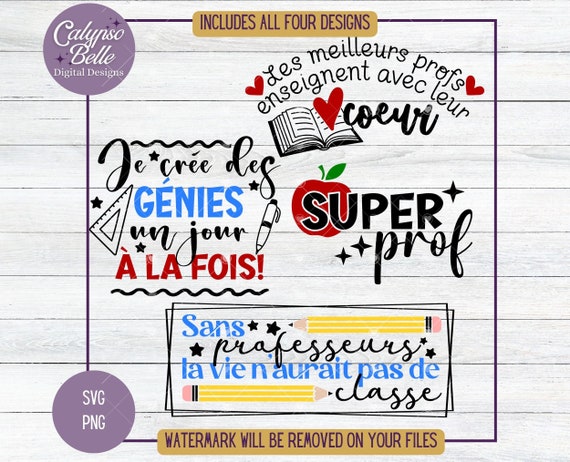 INCLUDES ALL FOUR DESIGNS
Calypso
Belle
Digital Designs
Les meilleurs profs
enseignent avec leur
coeur
Je crée des
GÉNIES
un jour
À LA FOIS!
SUPER
prof
Sans
professeurs
la vie n'aurait pas de
classe
SVG
PNG
WATERMARK WILL BE REMOVED ON YOUR FILES